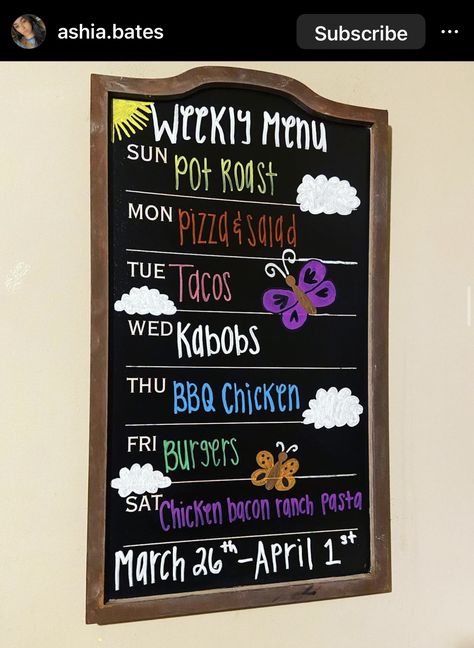 ashia.bates
Subscribe
Weekly Menu
SUN Pot Roast
MON Pizza & Salad
TUE Tacos
WED Kabobs
THU BBQ Chicken
FRI Burgers
SAT Chicken bacon ranch Pasta
March 26th - April 1st